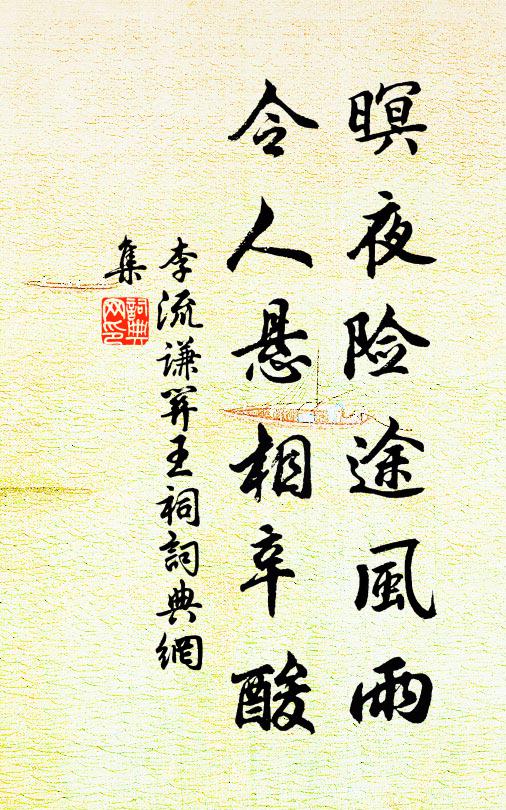 暝夜险途風雨
令人悬相辛酸
李流谦王祠詞典網
集
詞典网印